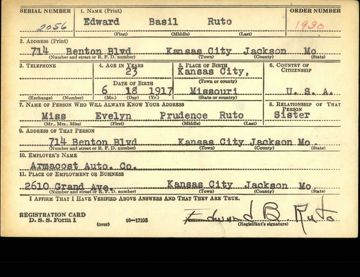 SERIAL NUMBER 1. NAME (Print) ORDER NUMBER
2056 Edward Basil Ruto 1930
(First) (Middle) (Last)
2. ADDRESS (Print)
714 Benton Blvd Kansas City Jackson Mo
(Number and street or R. F. D. number) (Town) (County) (State)
3. TELEPHONE 4. AGE IN YEARS 5. PLACE OF BIRTH 6. COUNTRY OF CITIZENSHIP
23 Kansas City,
DATE OF BIRTH (Town or county)
6 18 1917 Missouri U. S. A.
(Exchange) (Number) (Mo.) (Day) (Yr.) (State or country)
7. NAME OF PERSON WHO WILL ALWAYS KNOW YOUR ADDRESS 8. RELATIONSHIP OF THAT PERSON
Miss Evelyn Prudence Ruto Sister
(Mr., Mrs., Miss) (First) (Middle) (Last)
9. ADDRESS OF THAT PERSON
714 Benton Blvd Kansas City Jackson Mo
(Number and street or R. F. D. number) (Town) (County) (State)
10. EMPLOYER'S NAME
Armacost Auto. Co.
11. PLACE OF EMPLOYMENT OR BUSINESS
2610 Grand Ave. Kansas City Jackson Mo
(Number and street or R. F. D. number) (Town) (County) (State)
I AFFIRM THAT I HAVE VERIFIED ABOVE ANSWERS AND THAT THEY ARE TRUE.
REGISTRATION CARD
D. S. S. Form 1 16—17105 Edward B. Ruto
(Registrant's signature)